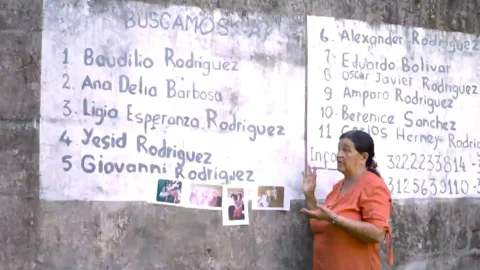 BUSCAMOS A
1 Baudilio Rodríguez
2 Ana Delia Barbosa
3 Ligia Esperanza Rodríguez
4 Yesid Rodríguez
5 Giovanni Rodríguez
6 Alexander Rodríguez
7 Eduardo Bolívar
8 Oscar Javier Rodríguez
9 Amparo Rodríguez
10 Berenice Sánchez
11 Carlos Herney Rodríg
Info 3222233814 -
3125639110 -